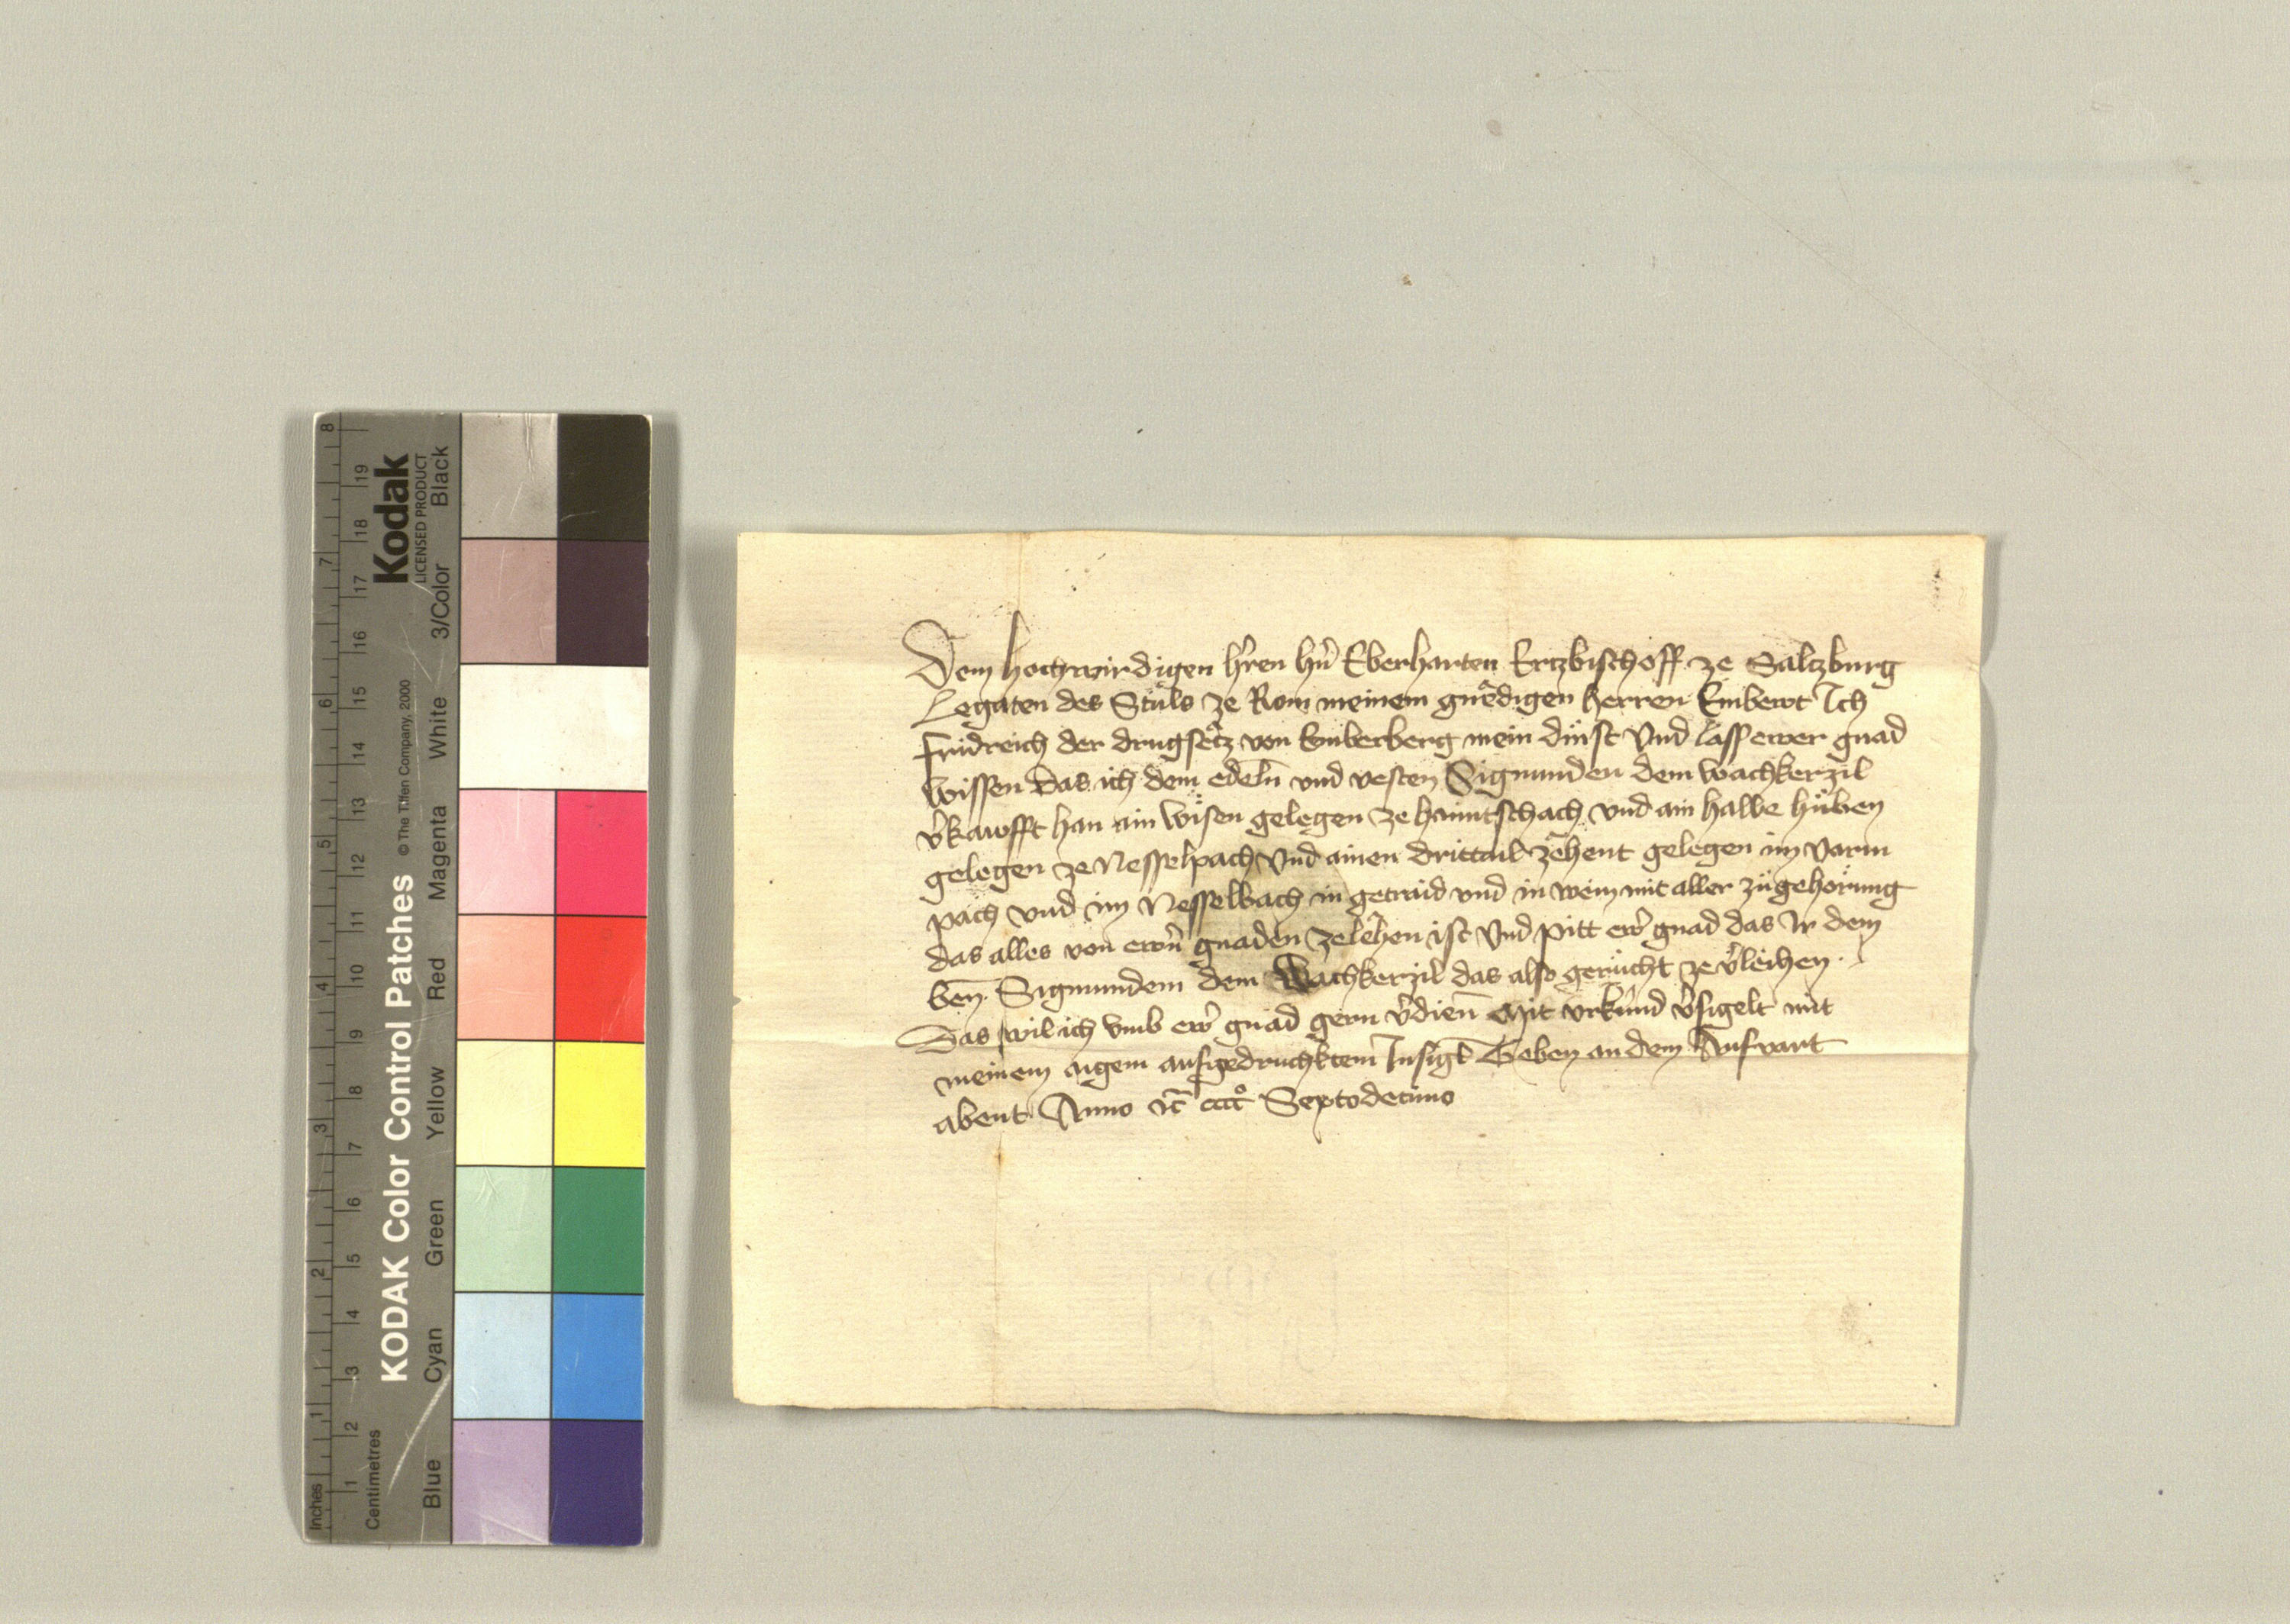 Dem hochwirdigen h'ren hn̄ Eberharten Ertzbischoff ze Saltzburg
Legaten des Stůls ze Rom meinem gnedigen herren Embewt Ich
Fridreich der drugsetz von Emberberg mein dinst Vnd lass ewer gnad
wissen das ich dem edeln̄ vnd vesten Sigmunden dem wachkerzil
v'kawfft han ain wisen gelegen ze haintschach vnd ain halbe hůben
gelegen ze Nesselpach Vnd ainen drittail zehent gelegen im varm
pach vnd im Nesselbach in getraid vnd in wein mit aller zůgehorung
das alles von ewrn̄ gnaden ze lehen ist Vnd pitt ewr' gnad das Ir dem
ben̄ Sigmundem dem Wachkerzil das also gerucht ze v'leihen.
Das wil ich vmb ewr' gnad gern v'dien̄ Mit vrkund v'sigelt mit
meinem aigem aufgedruchktem Insigl̄ Geben an dem Aufvart
abent Anno &c̄ ccccº Septodecimo
KODAK Color Control Patches © The Tiffen Company, 2000
Kodak
LICENSED PRODUCT
Blue Cyan Green Yellow Red Magenta White 3/Color Black
Inches 1 2 3 4 5 6 7 8
Centimetres 1 2 3 4 5 6 7 8 9 10 11 12 13 14 15 16 17 18 19